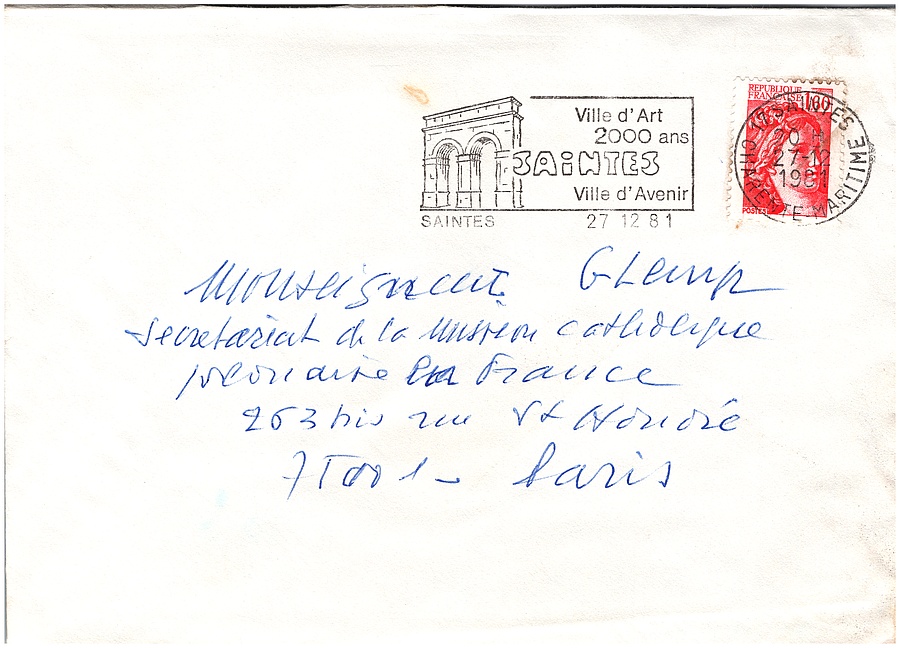 Ville d'Art
2000 ans
SAINTES
Ville d'Avenir
SAINTES
27 12 81
REPUBLIQUE
FRANÇAISE 1,60
POSTES
17 SAINTES
20 H
27-12
1981
CHARENTE MARITIME
Monseigneur Glemp
Secretariat de la Mission catholique
polonaise en France
263 bis rue St Honoré
75001 - Paris